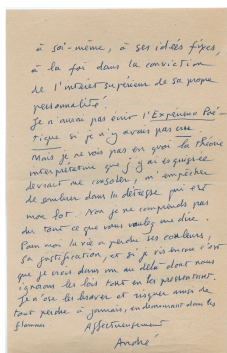 à soi-même, à ses idées fixes,
à la foi dans la conviction
de l'intérêt supérieur de sa propre
personnalité.
Je n'aurai pas écrit l'Expérience Poé-
tique si je n'y avais pas cru
Mais je ne vois pas en quoi la théorie
interprétative que j'y ai esquissée
devrait me consoler, m'empêcher
de sombrer dans la détresse qui est
mon lot. Non je ne comprends pas
du tout ce que vous voulez me dire.
Pour moi la vie a perdu ses couleurs,
sa justification, et si je vis encore c'est
que je crois dans un au delà dont nous
ignorons les lois tout en les pressentant.
Je n'ose les braver et risquer ainsi de
tout perdre à jamais, en demeurant dans les
flammes
Affectueusement
André